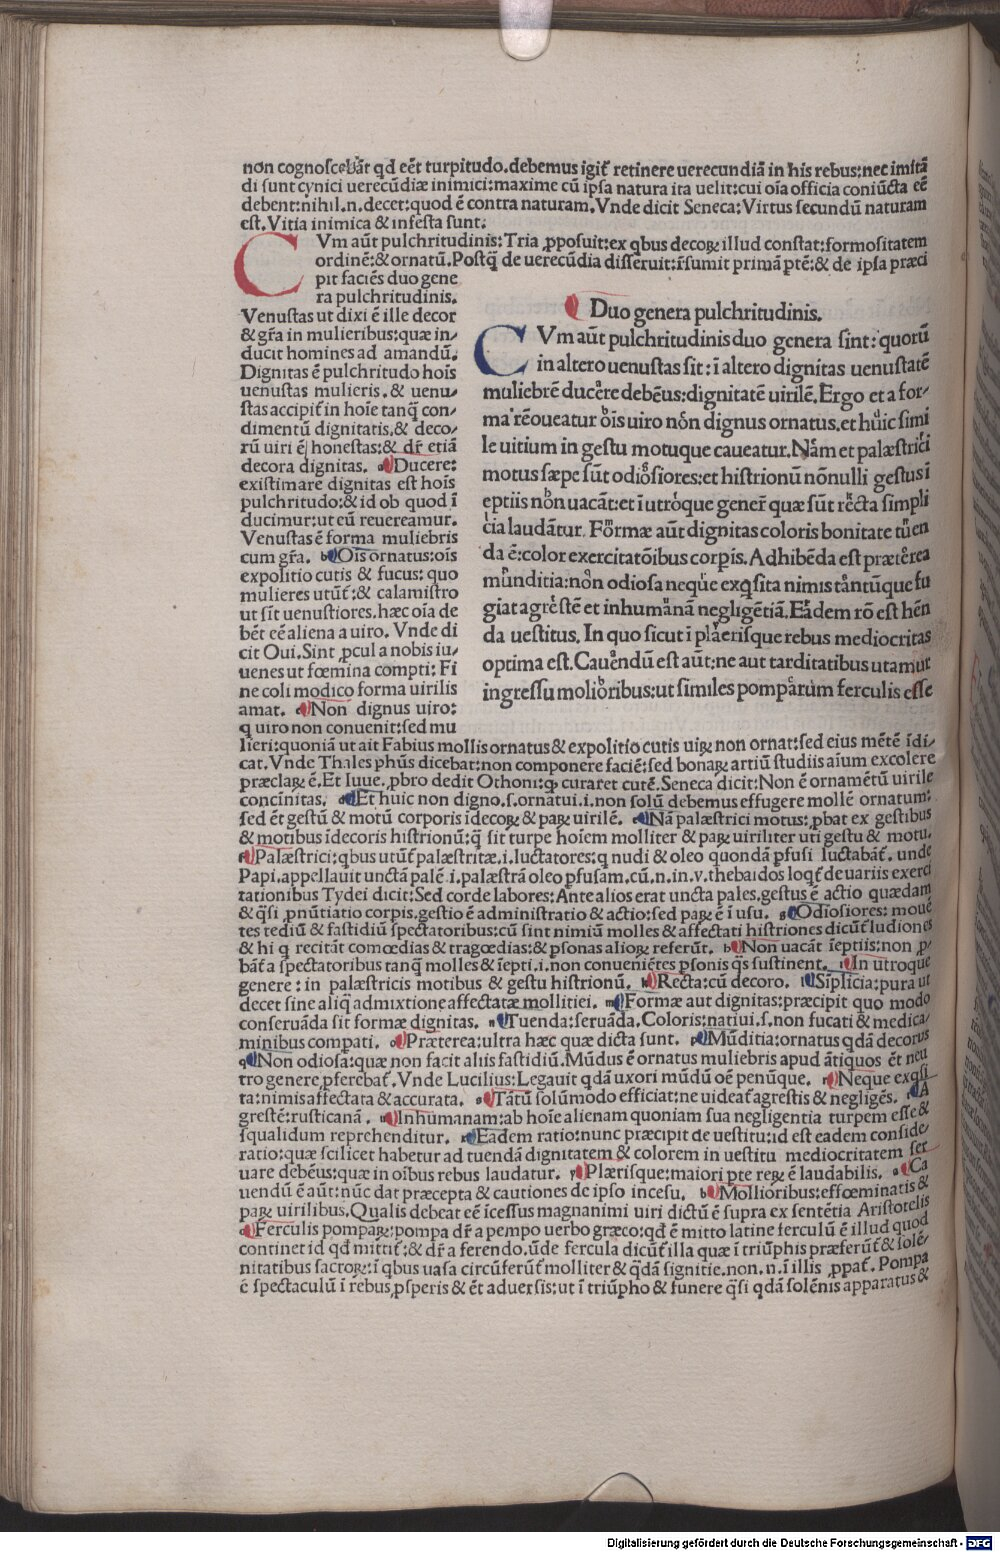 non cognoscebāt qd eēt turpitudo.debemus igit᷑ retinere uerecundiā in his rebus:nec imitā
di sunt cynici uerecūdiæ inimici:maxime cū ipsa natura ita uelit:cui oīa officia coniūcta eē
debent:nihil.n.decet:quod ē contra naturam.Vnde dicit Seneca:Virtus secundū naturam
est.Vitia inimica & infesta sunt.
CVm aūt pulchritudinis:Tria ꝓposuit:ex qbus decoꝝ illud constat:formositatem
ordinē:& ornatū.Postq̄ de uerecūdia disseruit:r̄sumit primā ptē:& de ipsa præci
pit faciēs duo gene
ra pulchritudinis.
Venustas ut dixi ē ille decor
& gr̄a in mulieribus:quæ in/
ducit homines ad amandū.
Dignitas ē pulchritudo hoīs
uenustas mulieris.& uenu/
stas accipit᷑ in hoīe tanq̄ con/
dimentū dignitatis.& deco/
rū uiri ē honestas:& dr̄ etiā
decora dignitas. a Ducere:
existimare dignitas est hoīs
pulchritudo:& id ob quod ī
ducimur:ut eū reuereamur.
Venustas ē forma muliebris
cum gr̄a. b Oīs ornatus:oīs
expolitio cutis & fucus: quo
mulieres utūt᷑:& calamistro
ut sīt uenustiores.hæc oīa de
bēt eē aliena a uiro. Vnde di
cit Oui.Sint ꝓcul a nobis iu/
uenes ut fœmina compti: Fi
ne coli modico forma uirilis
amat. c Non dignus uiro:
q uiro non conuenit:sed mu
Duo genera pulchritudinis.
CVm aūt pulchritudinis duo genera sint: quorū
in altero uenustas sit: ī altero dignitas uenustatē
muliebrē ducere debēus:dignitatē uirilē.Ergo et a for/
ma rēoueatur oīs uiro nōn dignus ornatus.et huīc simi
le uitium in gestu motuque caueatur.Nām et palæstrici
motus sæpe sūt odiosiores:et histrionū nōnulli gestus ī
eptiis nōn uacāt:et ī utroque gener̄ quæ sūt recta simpli
cia laudātur. Formæ aūt dignitas coloris bonitate tuen
da ē:color exercitatōibus corpis.Adhibēda est præterea
munditia:non odiosa neque exqsita nimis tantūque fu
giat agrestē et inhumanā negligētiā.Eadem rō est hēn
da uestitus. In quo sicut ī plærisque rebus mediocritas
optima est.Cauendū est aūt:ne aut tarditatibus utamur
ingressu mollioribus:ut similes pomparum ferculis esse
lieri:quoniā ut ait Fabius mollis ornatus & expolitio cutis uiꝝ non ornat:sed eius mētē īdi/
cat.Vnde Thales phūs dicebat:non componere faciē:sed bonaꝝ artiū studiis aīum excolere
præclaꝝ ē.Et Iuue.ꝓbro dedit Othoni:ꝙ curaret cutē.Seneca dicit:Non ē ornamētū uirile
concīnitas. d Et huic non digno.s.ornatui.i.non solū debemus effugere mollē ornatum:
sed ēt gestū & motū corporis īdecoꝝ & paꝝ uirilē. e Nā palæstrici motus:ꝓbat ex gestibus
& motibus īdecoris histrionū:q̄ sit turpe hoīem molliter & paꝝ uiriliter uti gestu & motu.
f Palæstrici:qbus utūt᷑ palæstritæ.i.luctatores:q nudi & oleo quondā pfusi luctabāt᷑. unde
Papi.appellauit unctā palē.i.palæstrā oleo pfusam.cū.n.in.v.thebaidos loqt᷑ de uariis exerci
tationibus Tydei dicit:Sed corde labores:Ante alios erat uncta pales.gestus ē actio quædam
& q̄si ꝓnūtiatio corpis.gestio ē administratio & actio:sed paꝝ ē ī usu. g Odiosiores: mouē
tes tediū & fastidiū spectatoribus:cū sint nimiū molles & affectati histriones dicūt᷑ ludiones
& hi q recitāt comœdias & tragœdias:& psonas alioꝝ referūt. h Non uacāt īeptiis:non ꝓ
bāt᷑ a spectatoribus tanq̄ molles & īepti.i.non conueniētes psonis q̄s sustinent. i In utroque
genere: in palæstricis motibus & gestu histrionū. k Recta:cū decoro. l Siplicia:pura ut
decet sine aliq̄ admixtione affectatæ mollitiei. m Formæ aut dignitas:præcipit quo modo
conseruāda sit formæ dignitas. n Tuenda:seruāda.Coloris:natiui.s.non fucati & medica/
minibus compati. o Præterea:ultra hæc quæ dicta sunt. p Mūditia:ornatus qdā decorus
q Non odiosa:quæ non facit aliis fastidiū.Mūdus ē ornatus muliebris apud ātiquos ēt neu
tro genere pferebat᷑.Vnde Lucilius:Legauit qdā uxori mūdū oē penūque. r Neque exqsi
ta:nimis affectata & accurata. s Tātū solūmodo efficiat:ne uideat᷑ agrestis & negligēs. t A
grestē:rusticanā. u Inhumanam:ab hoīe alienam quoniam sua negligentia turpem esse &
squalidum reprehenditur. x Eadem ratio:nunc præcipit de uestitu:id est eadem conside/
ratio:quæ scilicet habetur ad tuendā dignitatem & colorem in uestitu mediocritatem ser
uare debēus:quæ in oībus rebus laudatur. y Plærisque:maiori pte reꝝ ē laudabilis. a Ca
uendū ē aūt:nūc dat præcepta & cautiones de ipso incesu. b Mollioribus:effœminatis &
paꝝ uirilibus.Qualis debeat eē īcessus magnanimi uiri dictū ē supra ex sentētia Aristotelis
c Ferculis pompaꝝ:pompa dr̄ a pempo uerbo græco:qd ē mitto latine ferculū ē illud quod
continet id qd mittit᷑:& dr̄ a ferendo.ūde fercula dicūt᷑ illa quæ ī triūphis præferūt᷑ & solē/
nitatibus sacroꝝ:ī qbus uasa circūferūt᷑ molliter & q̄dā signitie.non.n.ī illis ꝓpat᷑. Pompa
ē spectaculū ī rebus ꝓsperis & ēt aduersis:ut ī triūpho & funere q̄si qdā solēnis apparatus &
Digitalisierung gefördert durch die Deutsche Forschungsgemeinschaft - DFG